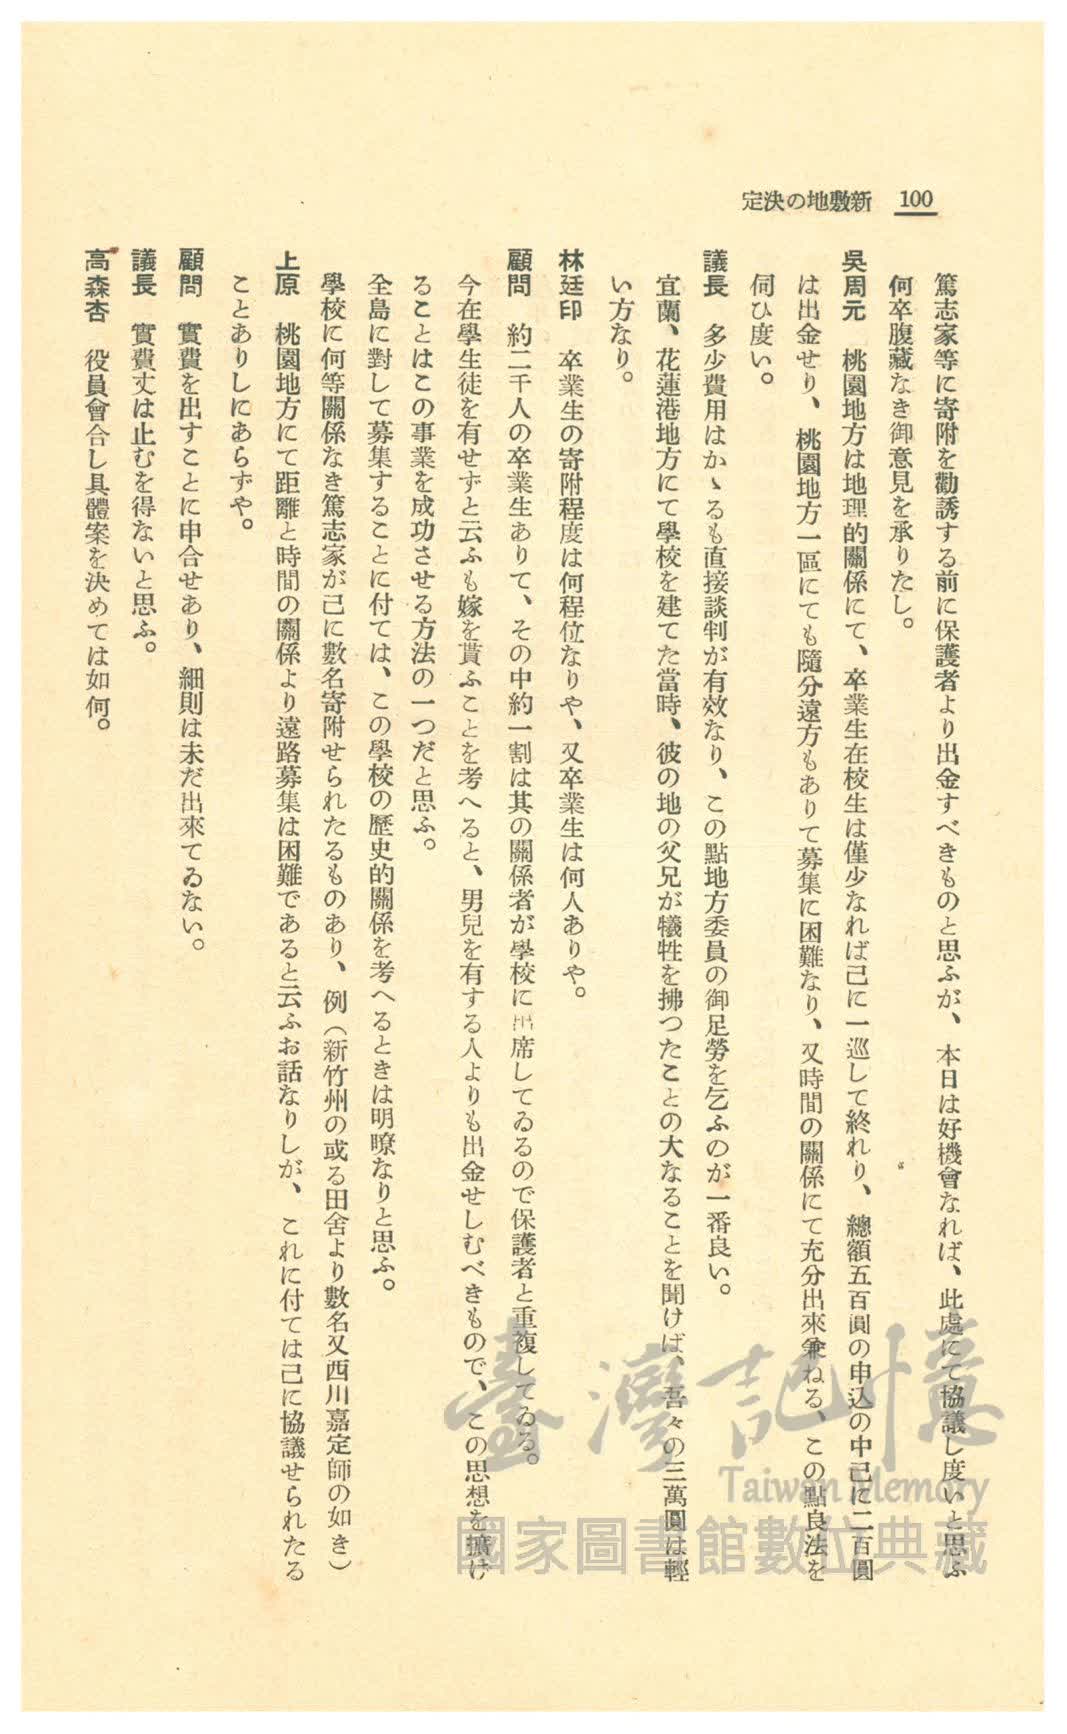 100
定決の地敷新
篤志家等に寄附を勸誘する前に保護者より出金すべきものと思ふが、本日は好機會なれば、此處にて協議し度いと思ふ
何卒腹藏なき御意見を承りたし。
吳周元　桃園地方は地理的關係にて、卒業生在校生は僅少なれば己に一巡して終れり、總額五百圓の申込の中己に二百圓
は出金せり、桃園地方一區にても隨分遠方もありて募集に困難なり、又時間の關係にて充分出來兼ねる、この點良法を
伺ひ度い。
議長　多少費用はかゝるも直接談判が有效なり、この點地方委員の御足勞を乞ふのが一番良い。
宜蘭、花蓮港地方にて學校を建てた當時、彼の地の父兄が犧牲を拂つたことの大なることを聞けば、吾々の三萬圓は輕
い方なり。
林廷印　卒業生の寄附程度は何程位なりや、又卒業生は何人ありや。
顧問　約二千人の卒業生ありて、その中約一割は其の關係者が學校に出席してゐるので保護者と重複してゐる。
今在學生徒を有せずと云ふも嫁を貰ふことを考へると、男兒を有する人よりも出金せしむべきもので、この思想を擴げ
ることはこの事業を成功させる方法の一つだと思ふ。
全島に對して募集することに付ては、この學校の歷史的關係を考へるときは明瞭なりと思ふ。
學校に何等關係なき篤志家が己に數名寄附せられたるものあり、例（新竹州の或る田舍より數名又西川嘉定師の如き）
上原　桃園地方にて距離と時間の關係より遠路募集は困難であると云ふお話なりしが、これに付ては己に協議せられたる
ことありしにあらずや。
顧問　實費を出すことに申合せあり、細則は未だ出來てゐない。
議長　實費丈は止むを得ないと思ふ。
高森杏　役員會合し具體案を決めては如何。
臺灣記憶
Taiwan Memory
國家圖書館數位典藏